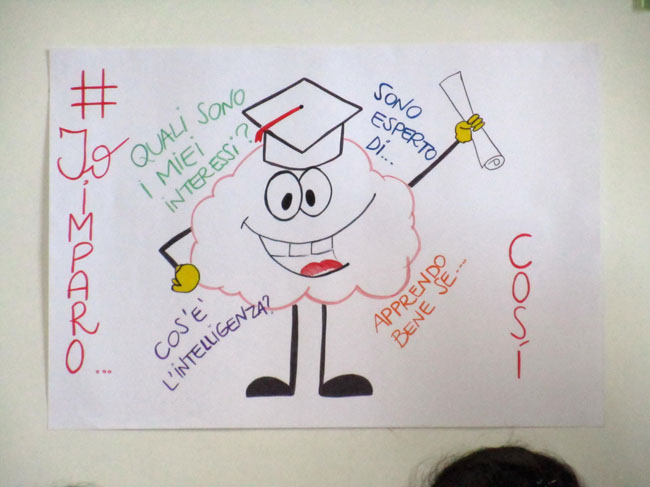 #
Io IMPARO...
QUALI SONO
I MIEI
INTERESSI?
SONO
ESPERTO
DI...
COS'E'
L'INTELLIGENZA?
APPRENDO
BENE SE...
COSÌ